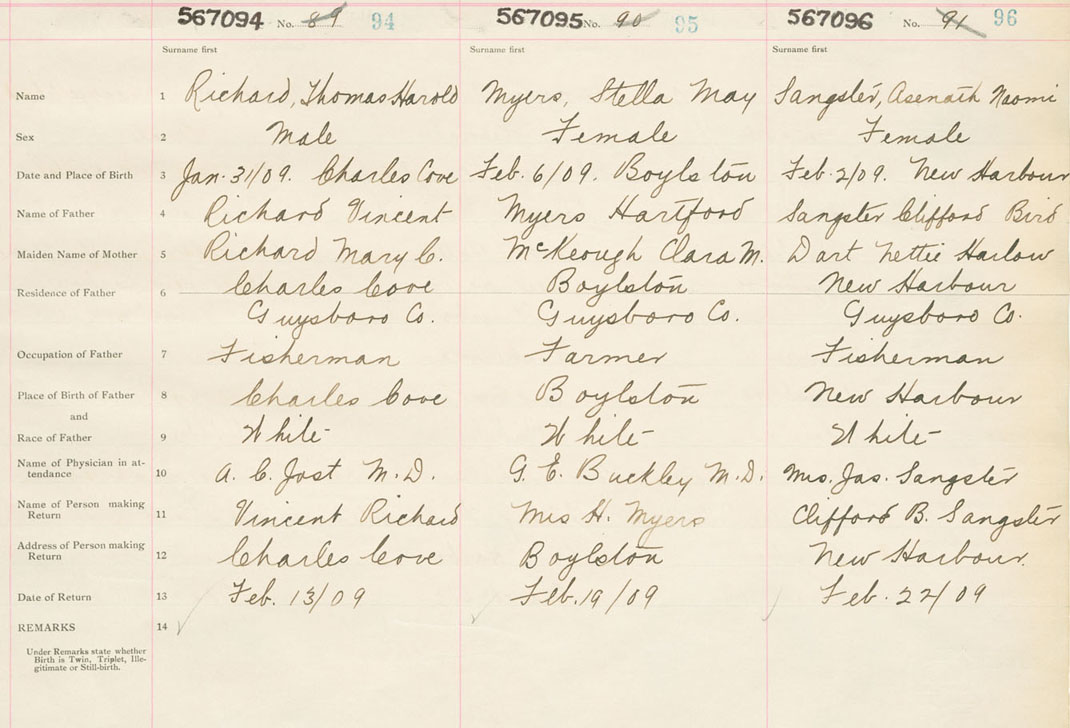 567094 No. 89 94 567095 No. 90 95 567096 No. 91 96
Surname first Surname first Surname first
Name 1 Richard, Thomas Harold Myers, Stella May Sangster, Asenath Naomi
Sex 2 Male Female Female
Date and Place of Birth 3 Jan. 31/09. Charles Cove Feb. 6/09. Boylston Feb. 2/09. New Harbour
Name of Father 4 Richard Vincent Myers Hartford Sangster Clifford Bird
Maiden Name of Mother 5 Richard Mary C. McKeough Clara M. Dart Nettie Harlow
Residence of Father 6 Charles Cove Boylston New Harbour
Guysboro Co. Guysboro Co. Guysboro Co.
Occupation of Father 7 Fisherman Farmer Fisherman
Place of Birth of Father 8 Charles Cove Boylston New Harbour
and
Race of Father 9 White White White
Name of Physician in at-
tendance 10 A. C. Jost M.D. G. E. Buckley M.D. Mrs. Jas. Sangster
Name of Person making
Return 11 Vincent Richard Mrs H. Myers Clifford B. Sangster
Address of Person making
Return 12 Charles Cove Boylston New Harbour.
Date of Return 13 Feb. 13/09 Feb. 19/09 Feb. 22/09
REMARKS 14
Under Remarks state whether
Birth is Twin, Triplet, Ille-
gitimate or Still-birth.